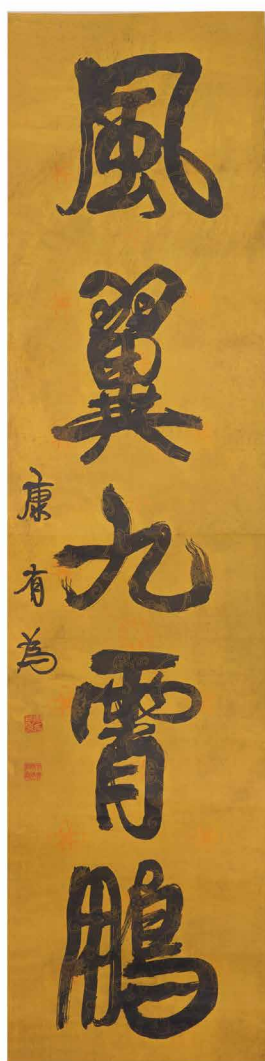 風翼九霄鵬
康有為